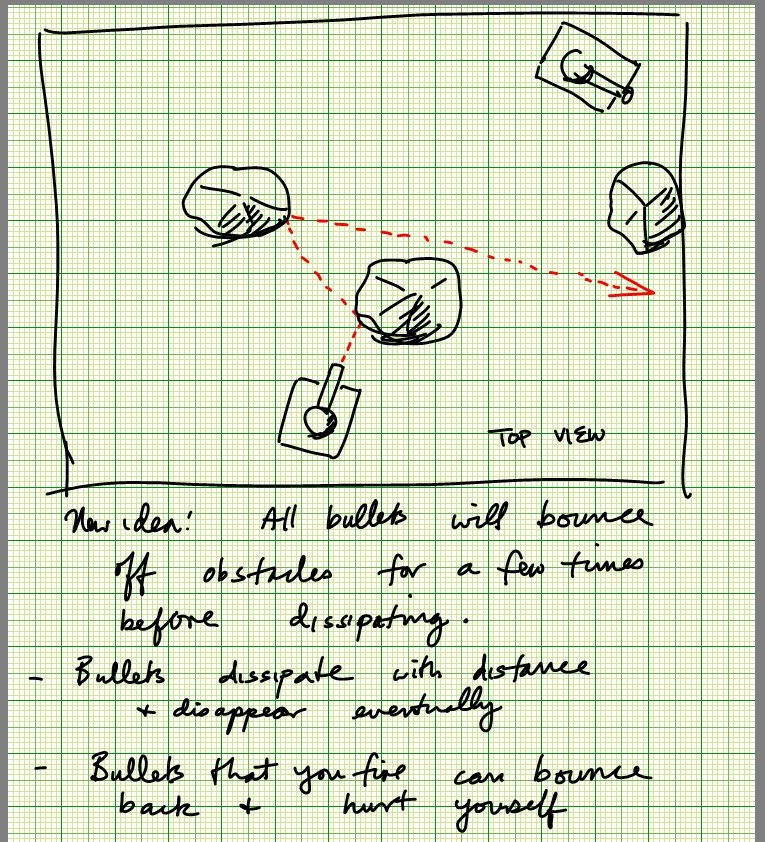 TOP VIEW
New idea: All bullets will bounce
off obstacles for a few times
before dissipating.
- Bullets dissipate with distance
+ disappear eventually
- Bullets that you fire can bounce
back + hurt yourself